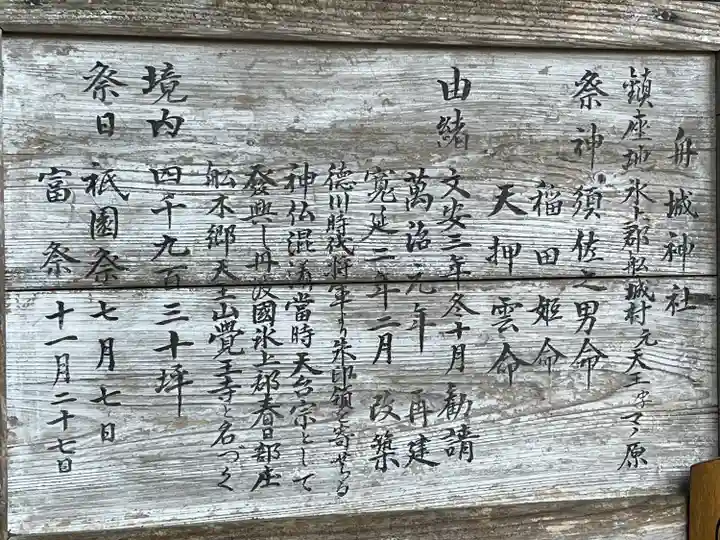 舟城神社
鎮座地 氷上郡舩城村 元天王字マヽ原
祭神 須佐之男命
稲田姫命
天押雲命
由緒 文安三年冬十月 勧請
萬治元年 再建
寛延二年二月 改築
徳川時代将軍より朱印領を寄せらる
神仏混淆當時天台宗として
發興し丹波國氷上郡春日部庄
舩木郷天王山覺王寺と名づく
境内 四千九百三十坪
祭日 祇園祭 七月七日
富祭 十一月二十七日